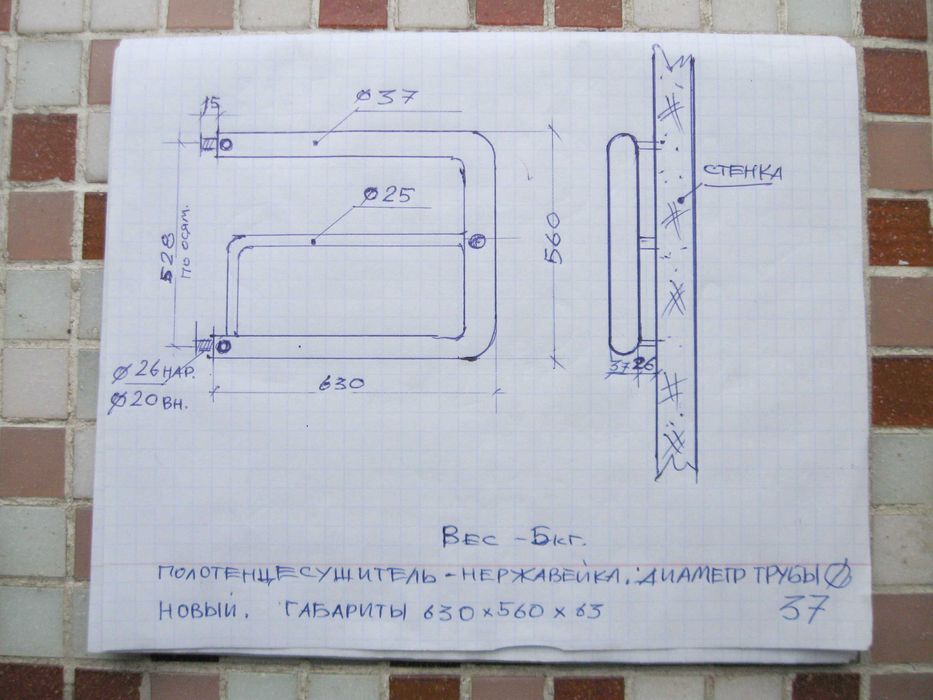 15
Ø37
Ø25
СТЕНКА
528
по осям.
560
Ø26 НАР.
Ø20 ВН.
630
37 26
ВЕС - 5 КГ.
ПОЛОТЕНЦЕСУШИТЕЛЬ - НЕРЖАВЕЙКА. ДИАМЕТР ТРУБЫ Ø
37
НОВЫЙ. ГАБАРИТЫ 630 x 560 x 63